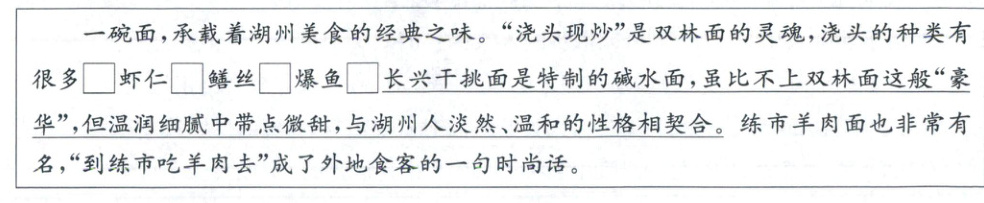 一碗面,承载着湖州美食的经典之味。“浇头现炒”是双林面的灵魂,浇头的种类有
很多□虾仁□鳝丝□爆鱼□长兴干挑面是特制的碱水面,虽比不上双林面这般“豪
华”,但温润细腻中带点微甜,与湖州人淡然、温和的性格相契合。练市羊肉面也非常有
名,“到练市吃羊肉去”成了外地食客的一句时尚话。